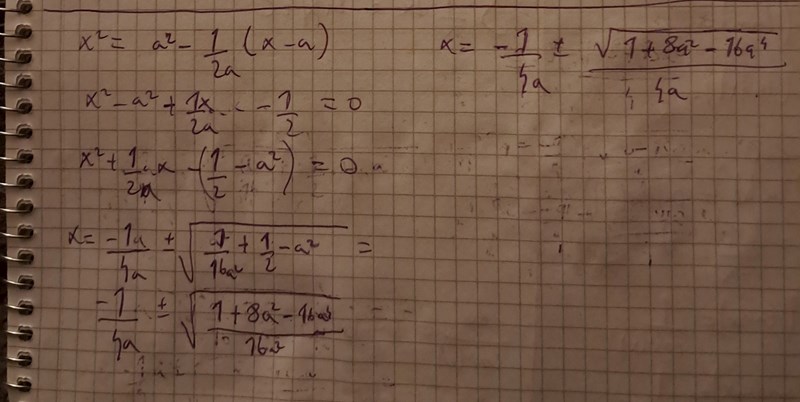 x² = a² - 1/2a (x - a)
x² - a² + 1x/2a - 1/2 = 0
x² + 1/2a x - (1/2 - a²) = 0
x = -1a/4a ± √(1/16a² + 1/2 - a²) =
-1/4a ± √((1 + 8a² - 16a⁴)/16a²)
x = -1/4a ± √(1 + 8a² - 16a⁴)/4a